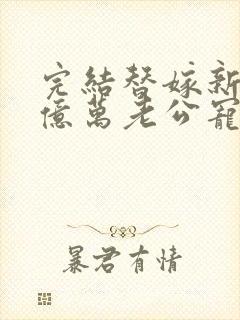 完結替嫁新
億萬老公寵
暴君有情